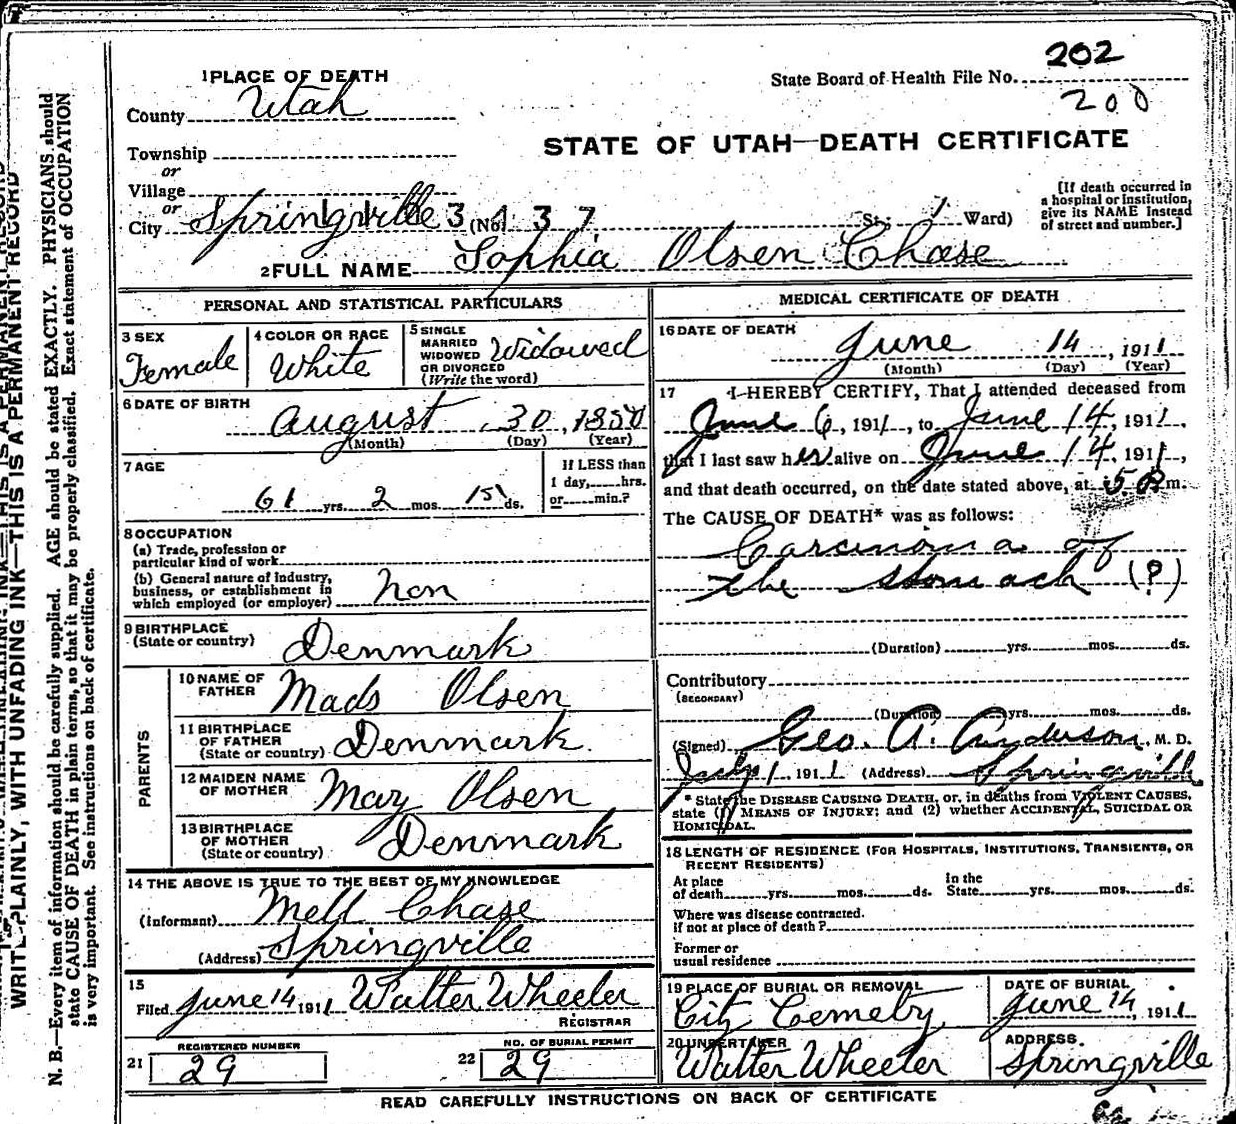 202
State Board of Health File No.
200
1 PLACE OF DEATH
County Utah
STATE OF UTAH—DEATH CERTIFICATE
Township
or
Village
or
City Springville (No. St.; 1 Ward)
113 137
[If death occurred in
a hospital or institution,
give its NAME instead
of street and number.]
2 FULL NAME Sophia Olsen Chase
PERSONAL AND STATISTICAL PARTICULARS
3 SEX
Female
4 COLOR OR RACE
White
5 SINGLE
MARRIED
WIDOWED
OR DIVORCED
(Write the word)
Widowed
6 DATE OF BIRTH
August 30, 1850
(Month) (Day) (Year)
7 AGE
61 yrs. 2 mos. 15 ds.
If LESS than
1 day,......hrs.
or......min.?
8 OCCUPATION
(a) Trade, profession or
particular kind of work
(b) General nature of industry,
business, or establishment in
which employed (or employer) Non
9 BIRTHPLACE
(State or country) Denmark
PARENTS
10 NAME OF
FATHER Mads Olsen
11 BIRTHPLACE
OF FATHER
(State or country) Denmark.
12 MAIDEN NAME
OF MOTHER May Olsen
13 BIRTHPLACE
OF MOTHER
(State or country) Denmark
14 THE ABOVE IS TRUE TO THE BEST OF MY KNOWLEDGE
(Informant) Mell Chase
(Address) Springville
15
Filed June 14 1911 Walter Wheeler
REGISTRAR
REGISTERED NUMBER
21 29
NO. OF BURIAL PERMIT
22 29
MEDICAL CERTIFICATE OF DEATH
16 DATE OF DEATH
June 14, 1911
(Month) (Day) (Year)
17 I HEREBY CERTIFY, That I attended deceased from
June 6, 1911, to June 14, 1911,
that I last saw her alive on June 14, 1911,
and that death occurred, on the date stated above, at 5 m.
The CAUSE OF DEATH* was as follows:
Carcinoma of
the stomach (?)
(Duration) yrs. mos. ds.
Contributory
(SECONDARY)
(Duration) yrs. mos. ds.
(Signed) Geo. A. Anderson, M. D.
July 1, 1911 (Address) Springville
* State the DISEASE CAUSING DEATH, or, in deaths from VIOLENT CAUSES,
state (1) MEANS OF INJURY; and (2) whether ACCIDENTAL, SUICIDAL OR
HOMICIDAL.
18 LENGTH OF RESIDENCE (FOR HOSPITALS, INSTITUTIONS, TRANSIENTS, OR
RECENT RESIDENTS)
At place
of death yrs. mos. ds.
In the
State yrs. mos. ds.
Where was disease contracted.
if not at place of death?
Former or
usual residence
19 PLACE OF BURIAL OR REMOVAL
City Cemetry
DATE OF BURIAL
June 14, 1911
20 UNDERTAKER
Walter Wheeler
ADDRESS.
Springville
READ CAREFULLY INSTRUCTIONS ON BACK OF CERTIFICATE
WRITE PLAINLY, WITH UNFADING INK—THIS IS A PERMANENT RECORD
N. B.—Every item of information should be carefully supplied. AGE should be stated EXACTLY. PHYSICIANS should
state CAUSE OF DEATH in plain terms, so that it may be properly classified. Exact statement of OCCUPATION
is very important. See instructions on back of certificate.